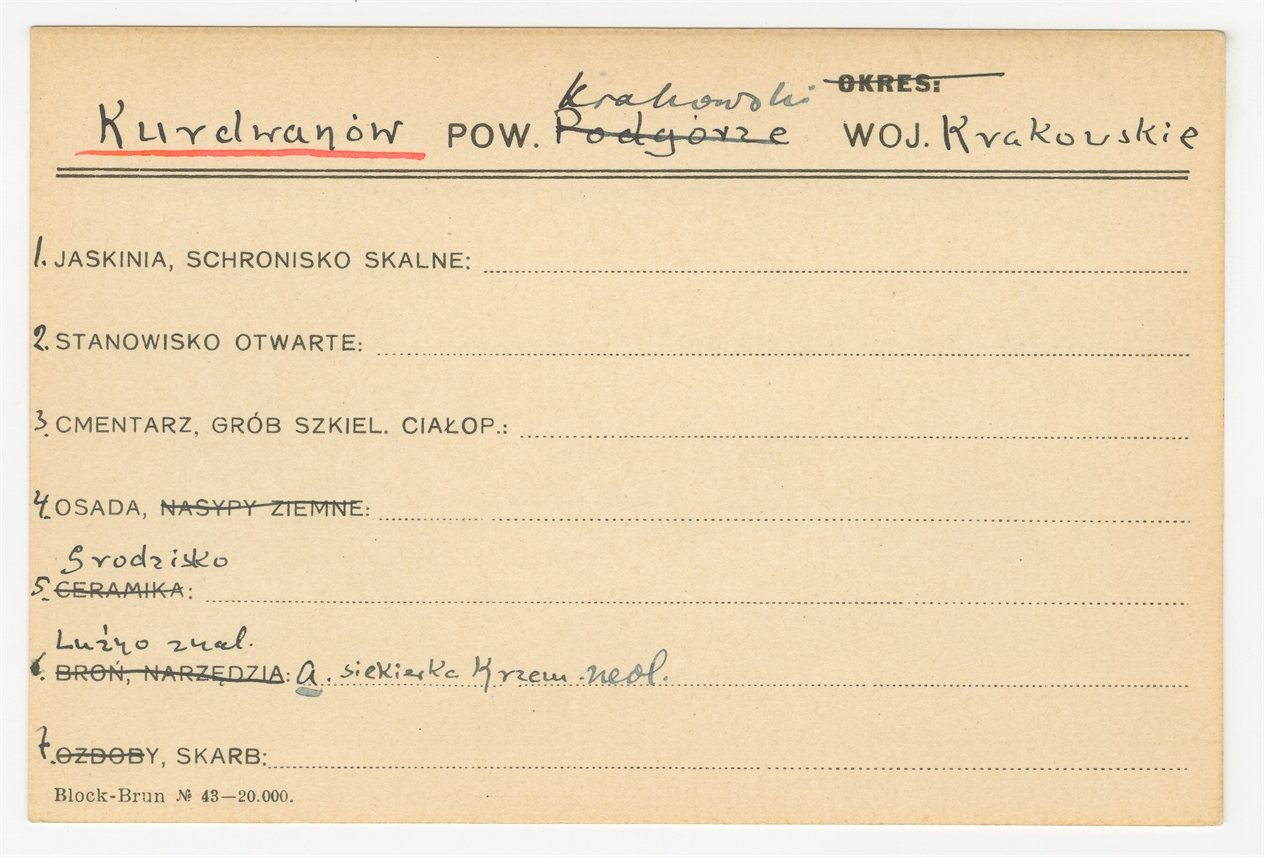 Krakowski OKRES:
Kurdwanów POW. Podgórze WOJ. Krakowskie
1. JASKINIA, SCHRONISKO SKALNE:
2. STANOWISKO OTWARTE:
3. CMENTARZ, GRÓB SZKIEL. CIAŁOP.:
4. OSADA, NASYPY ZIEMNE:
Grodzisko
5. CERAMIKA:
Luźno znal.
6. BROŃ, NARZĘDZIA: a. siekierka Krzem. neol.
7. OZDOBY, SKARB:
Block-Brun № 43—20.000.